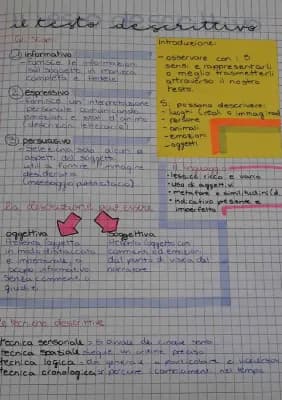 il testo descrittivo
Gli scopi
① informativo
- fornisce le informazioni
sul soggetto in maniera
completa e fedele
② espressivo
- fornisce un'interpretazione
personale comunicando
emozioni e stati d'animo
(descrizioni letterarie)
③ persuasivo
- seleziona solo alcuni
aspetti del soggetto
utili a fornire l'immagine
desiderata
(messaggio pubblicitario)
Introduzione:
- osservare con i 5
sensi e rappresentarli
o meglio trasmetterli
attraverso il nostro
testo.
Si possono descrivere:
- luoghi (reali o immaginari)
- persone
- animali
- emozioni
- oggetti
Il linguaggio
• lessico ricco e vario
• uso di aggettivi
• metafore e similitudini
• indicativo presente e
imperfetto
La descrizione può essere
oggettiva
Presenta l'oggetto
in modo distaccato
e impersonale, a
scopo informativo
senza commenti o
giudizi
soggettiva
Presenta l'oggetto con
commenti ed emozioni
dal punto di vista del
narratore
Le tecniche descrittive
tecnica sensoriale: si avvale dei cinque sensi
tecnica spaziale: segue un ordine preciso
tecnica logica: dal generale al particolare o viceversa
tecnica cronologica: cambiamenti nel tempo